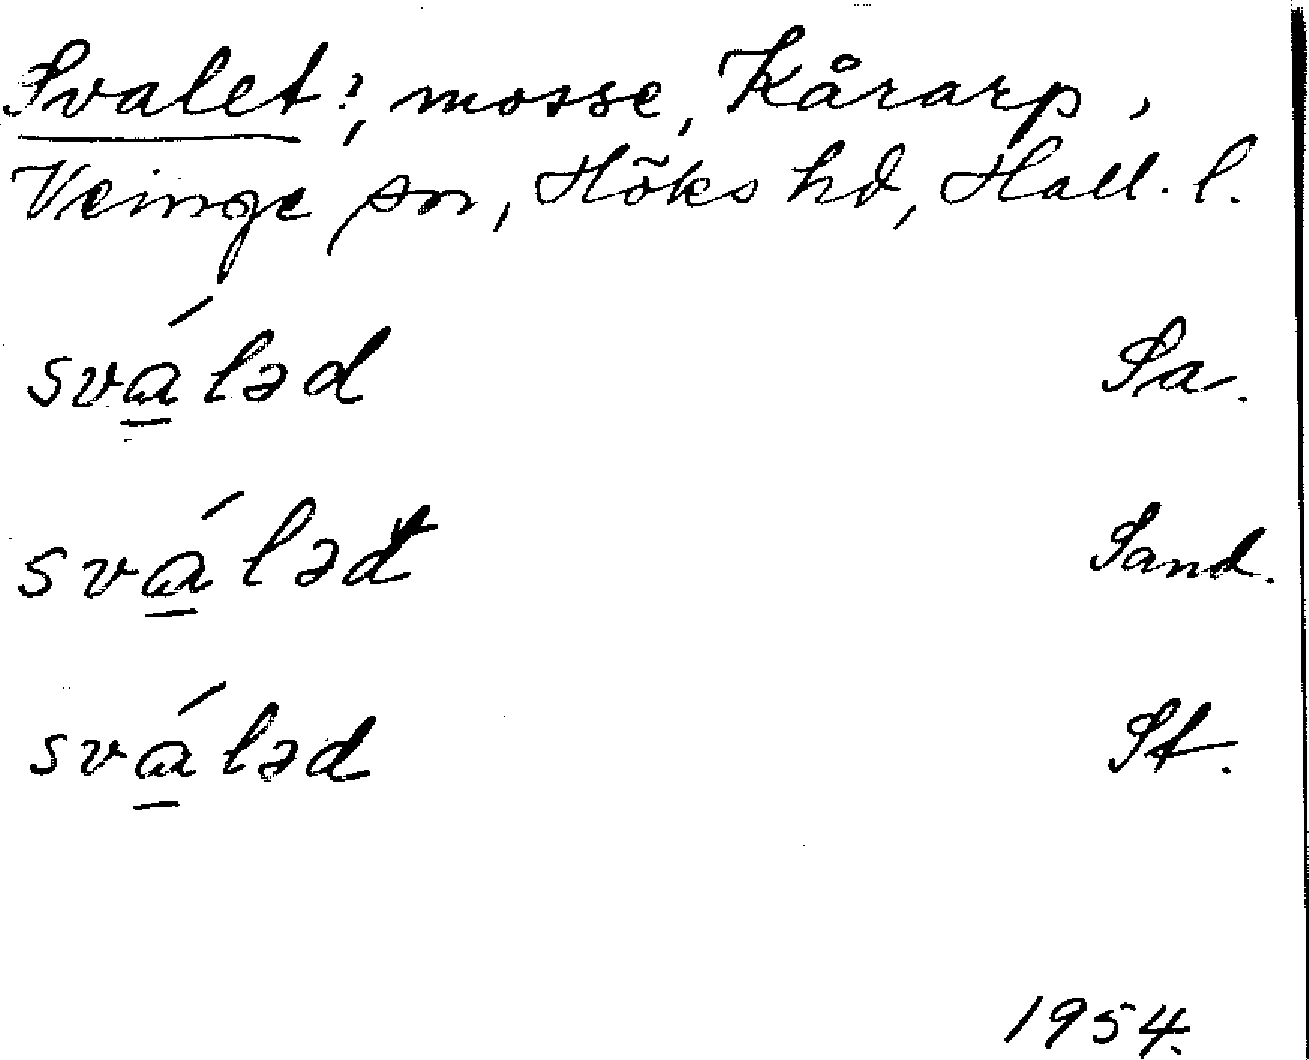 Svalet?, mosse, Kårarp,
Veinge sn, Höks hd, Hall. l.
svá̲ləd Sa.
svá̲ləd Sand.
svá̲ləd St.
1954.